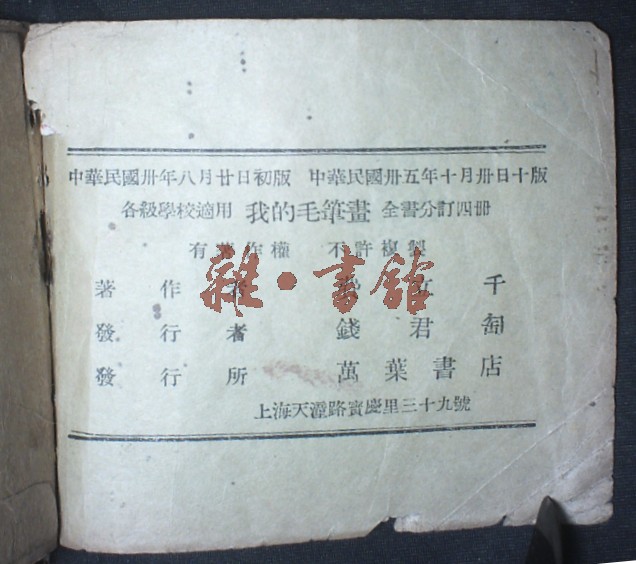 中華民國卅年八月廿日初版 中華民國卅五年十月卅日十版
各級學校適用 我的毛筆畫 全書分訂四冊
有著作權 不許複製
著作者 千
發行者 錢君匋
發行所 萬葉書店
上海天潼路寶慶里三十九號
雜·書館